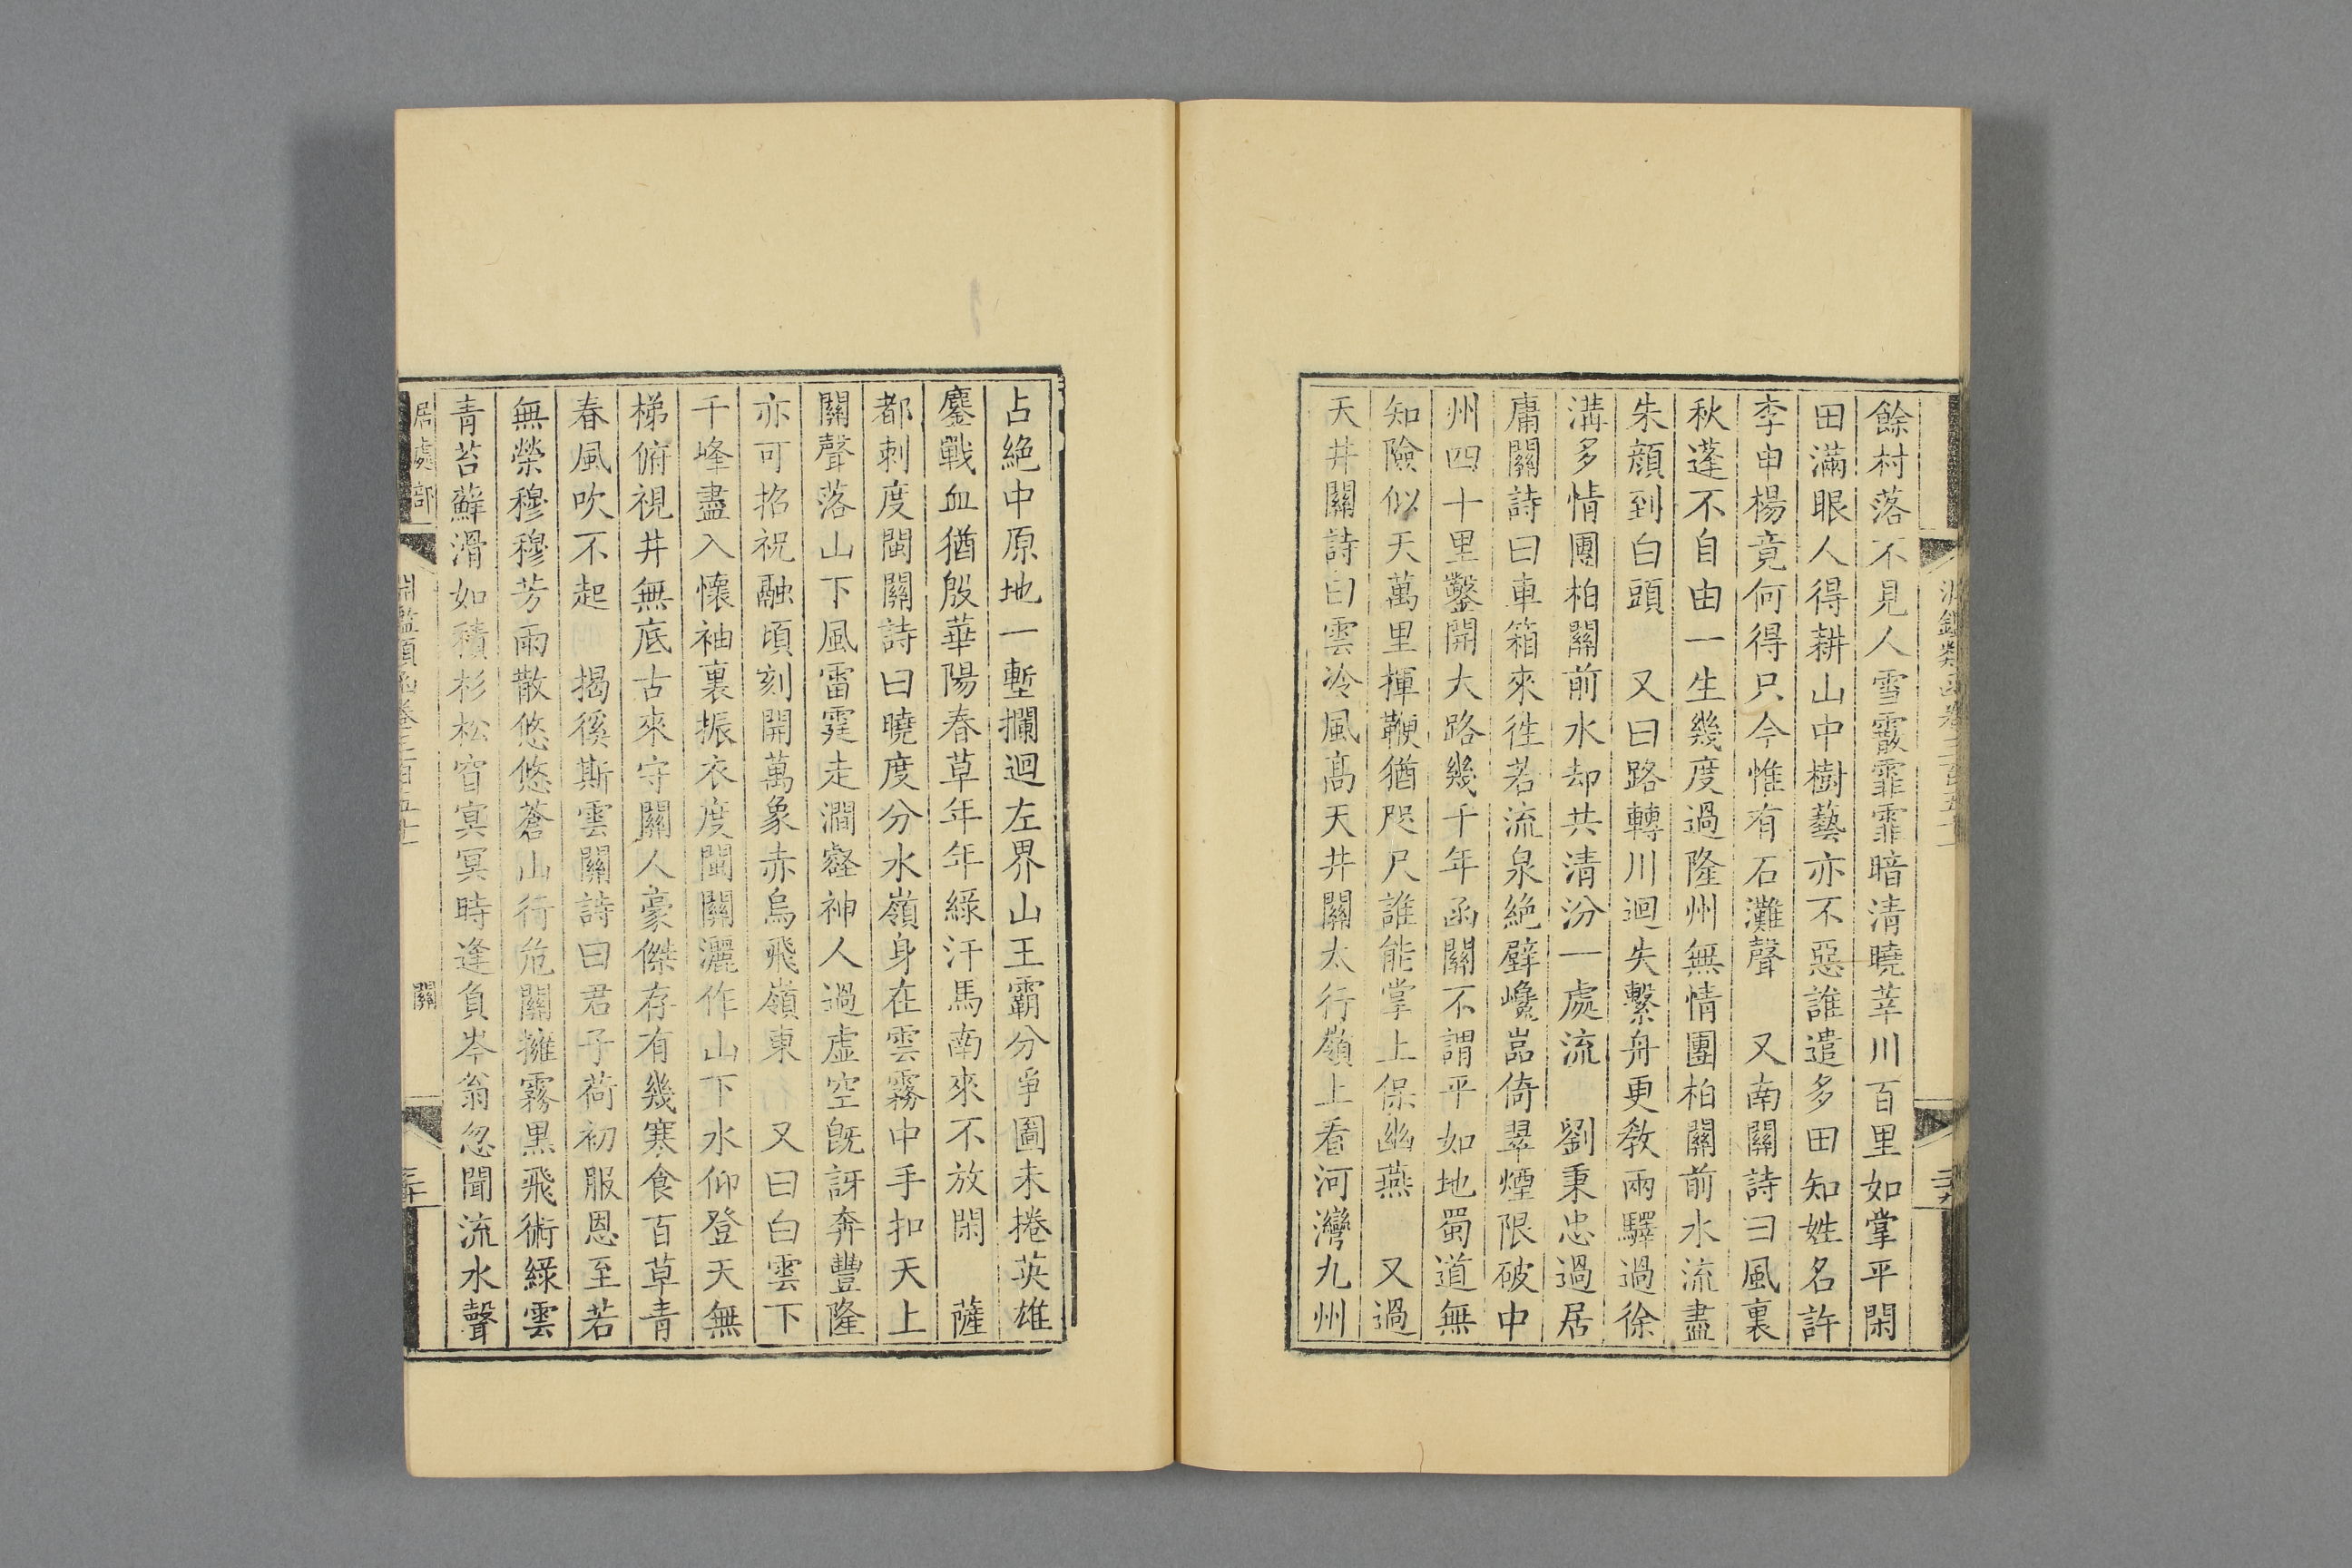 餘村落不見人雪霰霏霏暗清曉莘川百里如掌平閑
田滿眼人得耕山中樹藝亦不惡誰遣多田知姓名許
李申楊竟何得只今惟有石灘聲　又南關詩曰風裏
秋蓬不自由一生幾度過隆州無情團柏關前水流盡
朱顏到白頭　又曰路轉川迴失繫舟更教兩驛過徐
溝多情團柏關前水却共清汾一處流　劉秉忠過居
庸關詩曰車箱來徃若流泉絶壁巉嵓倚翠煙限破中
州四十里鑿開大路幾千年函關不謂平如地蜀道無
知險似天萬里揮鞭猶咫尺誰能掌上保幽燕　又過
天井關詩曰雲冷風髙天井關太行嶺上看河灣九州
占絶中原地一塹攔迴左界山王霸分爭圖未捲英雄
鏖戰血猶殷華陽春草年年綠汗馬南來不放閑　薩
都刺度閩關詩曰曉度分水嶺身在雲霧中手扣天上
關聲落山下風雷霆走澗壑神人過虛空旣訝奔豐隆
亦可招祝融頃刻開萬象赤烏飛嶺東　又曰白雲下
千峰盡入懷袖裏振衣度閩關灑作山下水仰登天無
梯俯視井無底古來守關人豪傑存有幾寒食百草青
春風吹不起　揭徯斯雲關詩曰君子荷初服恩至若
無榮穆穆芳雨散悠悠蒼山行危關擁霧黑飛術綠雲
青苔蘚滑如積杉松窅寞冥時逢負岑翁忽聞流水聲
居處部
關